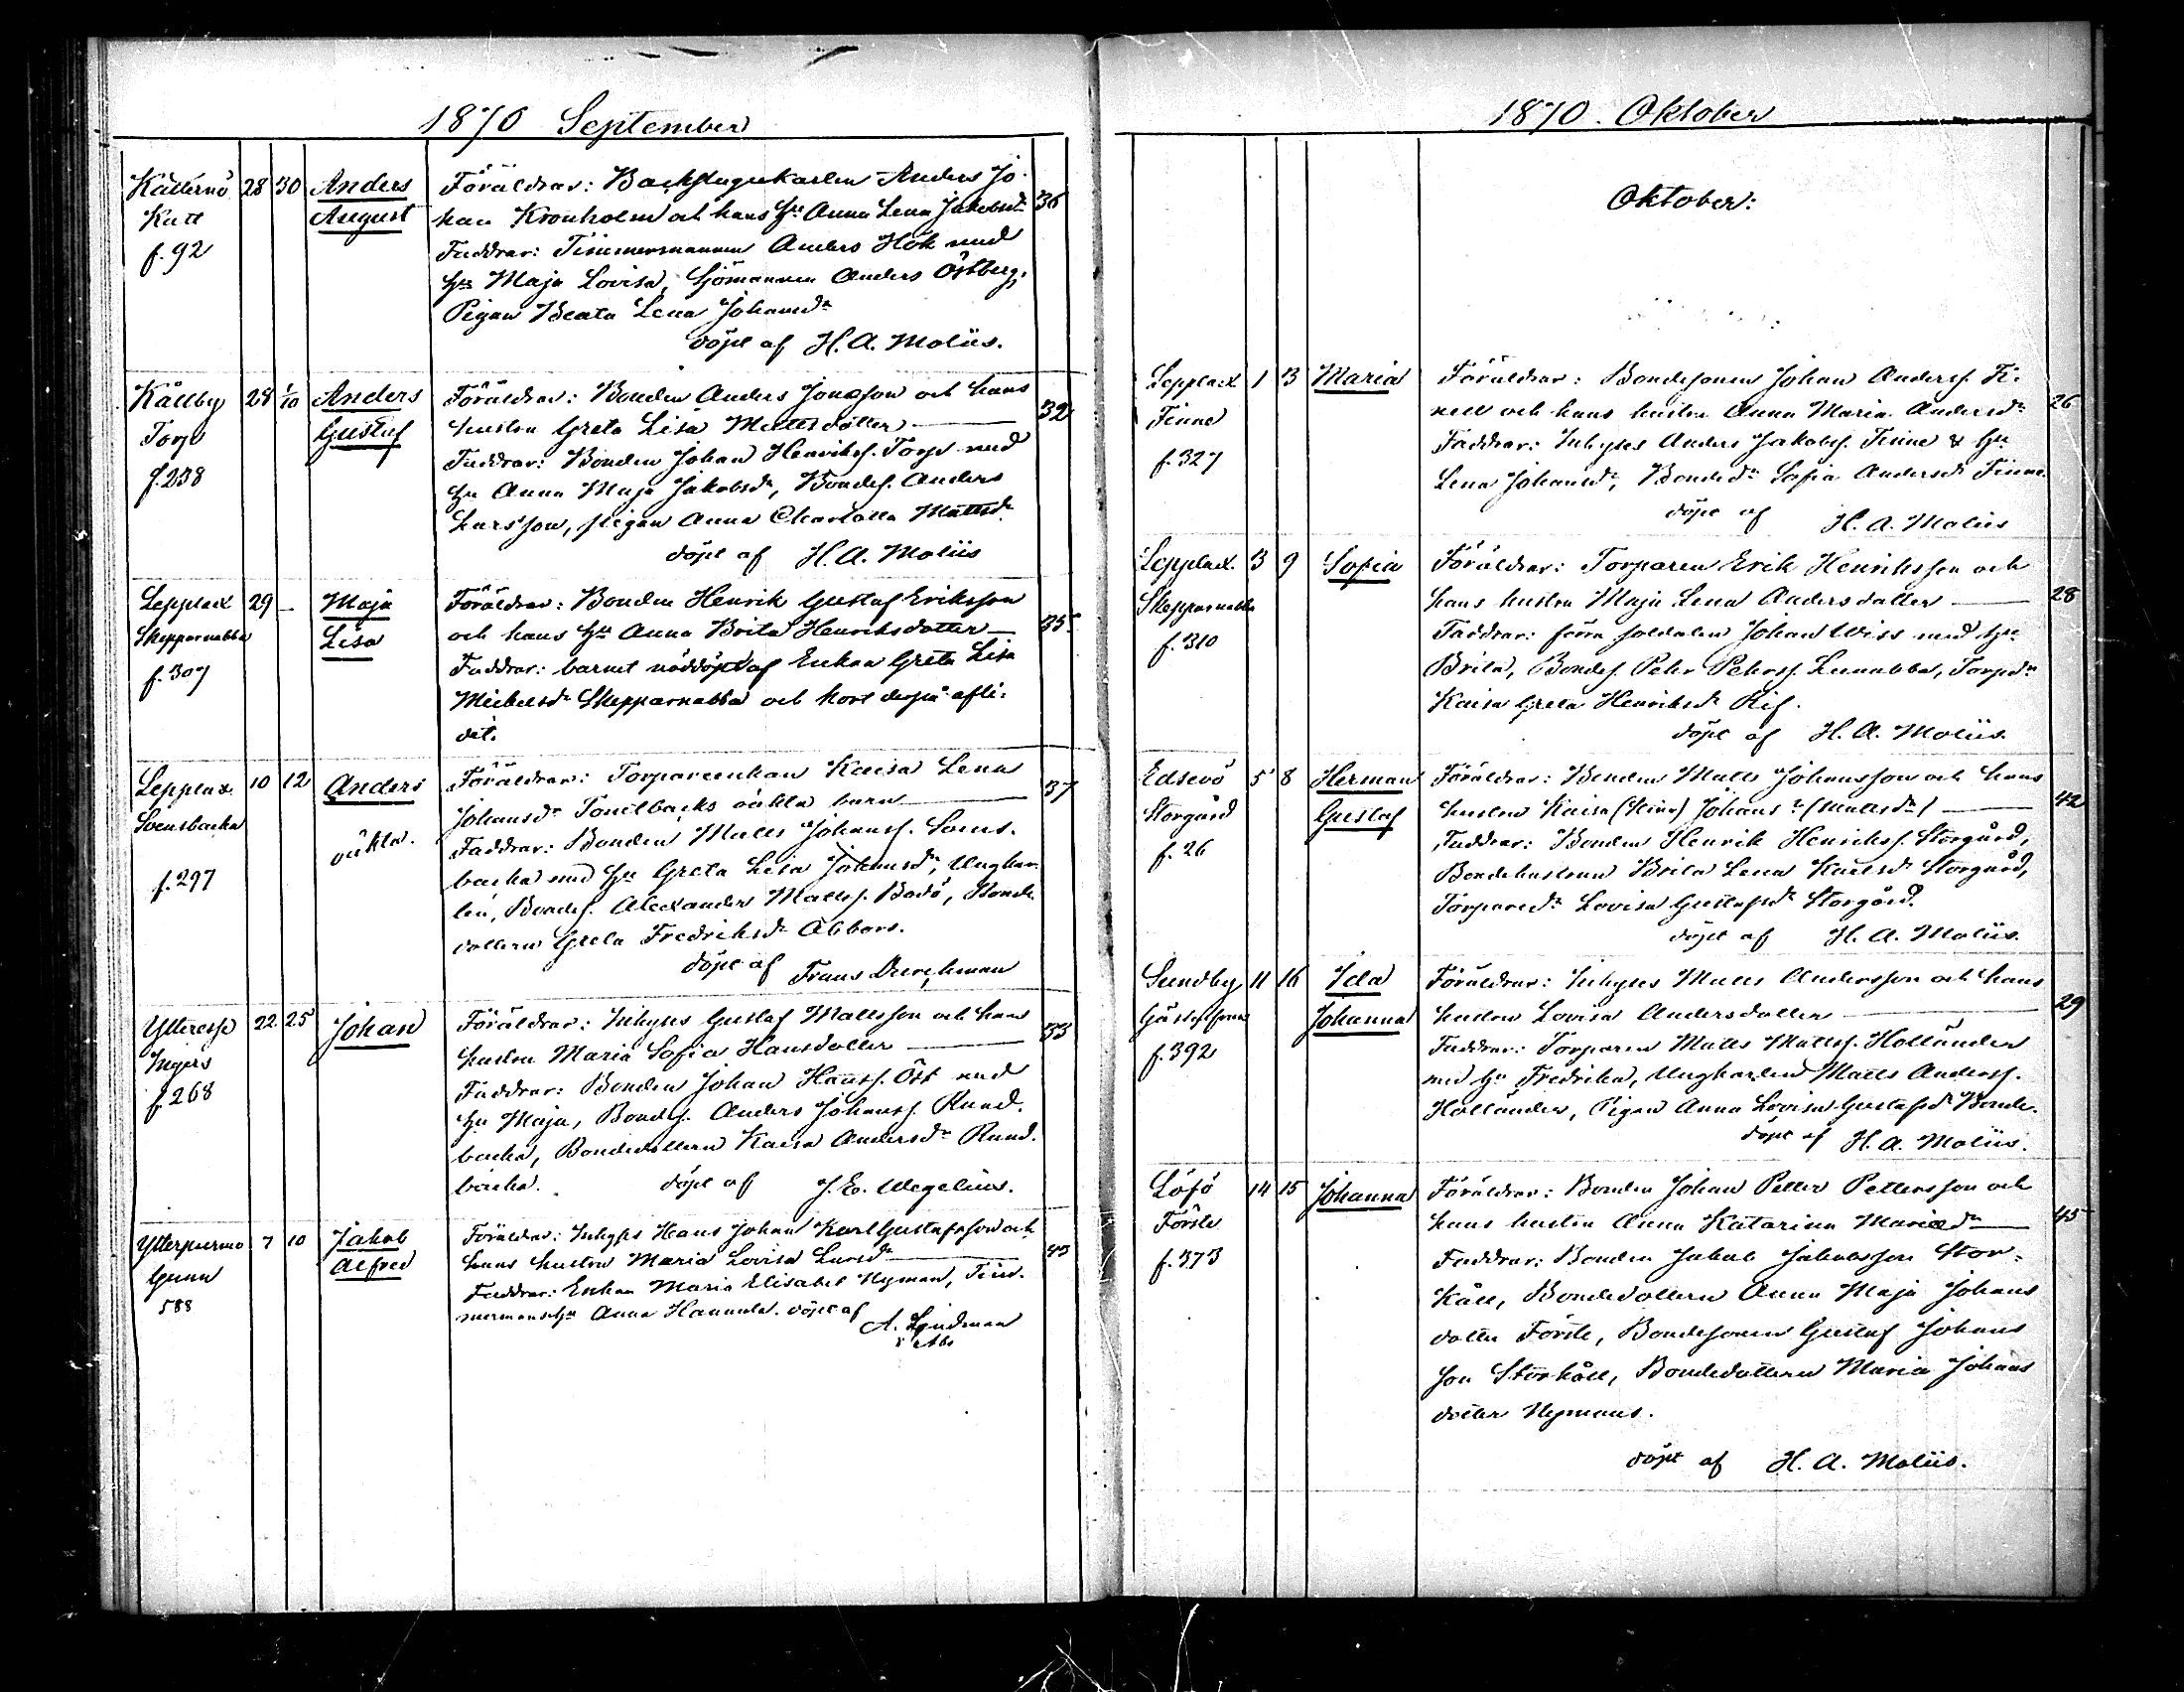 1870 September
Kållernö 28 30 Anders Föräldrar: Backstugukarlen Anders Jo-
Katt August han Kronholm och hans Hu Anna Lena Jakobsdr 36
f. 92 Faddrar: Timmermannen Anders Hök med
Hu Maja Lovisa, Sjömannen Anders Östberg,
Pigan Beata Lena Johansdr
döpt af H. A. Moliis.
Kållby 28 1/10 Anders Föräldrar: Bonden Anders Jonasson och hans
Torp Gustaf hustru Greta Lisa Mattsdotter 32
f. 238 Faddrar: Bonden Johan Henrikss. Torp med
Hu Anna Maja Jakobsdr, Bondes. Anders
Larsson, pigan Anna Charlotta Mattsdr
döpt af H. A. Moliis
Lepplax 29 – Maja Föräldrar: Bonden Henrik Gustaf Eriksson
Skepparnabba Lisa och hans Hu Anna Brita Henriksdotter 35
f. 307 Faddrar: barnet nöddöpt af Enkan Greta Lisa
Mickelsdr Skepparnabba och kort derpå afli-
dit.
Lepplax 10 12 Anders Föräldrar: Torpareenkan Kaisa Lena
Svensbacka oäkta. Johansdr Tonelbacks oäkta barn 37
Faddrar: Bonden Matts Johanss. Svens-
f. 297 backa med Hu Greta Lisa Johansdr, Ungkar-
len, Bondes. Alexander Mattss. Bodö, Bonde-
dottern Greta Fredriksdr Abbors.
döpt af Frans Durchman
Ytteresse 22 25 Johan Föräldrar: Inhyses Gustaf Mattsson och hans
Ingers hustru Maria Sofia Hansdotter 33
f. 268 Faddrar: Bonden Johan Hanss. Öst med
Hu Maja, Bondes. Anders Johanss. Rand-
backa, Bondedottern Kaisa Andersdr Rand-
backa. döpt af J. E. Wegelius.
Ytterpurmo 7 10 Jakob Föräldrar: Inhyses Hans Johan Karl Gustafsson och
Gunn Alfred hans hustru Maria Lovisa Larsdr 43
588 Faddrar: Enkan Maria Elisabet Nyman, Tim-
mermansHu Anna Hannula. döpt af A. Lindman
i Åbo
1870. Oktober
Oktober:
Lepplax 1 3 Maria Föräldrar: Bondesonen Johan Anderss. Fi-
Finne nell och hans hustru Anna Maria Andersdr 26
f. 327 Faddrar: Inhyses Anders Jakobss. Finne & Hu
Lena Johansdr, Bondedr Sofia Andersdr Finne
döpt af H. A. Moliis
Lepplax. 3 9 Sofia Föräldrar: Torparen Erik Henriksson och
Skepparnabba hans hustru Maja Lena Andersdotter 28
f. 310 Faddrar: förra soldaten Johan Wiss med Hu
Brita, Bondes. Petter Petterss. Lunabba, Torpdr
Kaisa Greta Henriksdr Rif.
döpt af H. A. Moliis.
Edsevö 5 8 Herman Föräldrar: Bonden Matts Johansson och hans
Storgård Gustaf hustru Kaisa (Stina) Johansdr (Mattsdr) 42
f. 26 Faddrar: Bonden Henrik Henrikss. Storgård,
Bondehustrun Brita Lena Karlsdr Storgård,
Torparedr Lovisa Gustafsdr Storgård.
döpt af H. A. Moliis.
Sundby 11 16 Ida Föräldrar: Inhyses Matts Andersson och hans
Johanna hustru Lovisa Andersdotter 29
f. 392 Faddrar: Torparen Matts Mattss. Holländer
med Hu Fredrika, Ungkarlen Matts Anderss.
Holländer, Pigan Anna Lovisa Gustafsdr Bonde.
döpt af H. A. Moliis.
Löfö 14 15 Johanna Föräldrar: Bonden Johan Petter Pettersson och
Förste hans hustru Anna Katarina Mariædr 45
f. 373 Faddrar: Bonden Jakob Jakobsson Stor-
kåll, Bondedottern Anna Maja Johans
dotter Förste, Bondesonen Gustaf Johans
son Storkåll, Bondedottern Maria Johans
dotter Nymans.
döpt af H. A. Moliis.